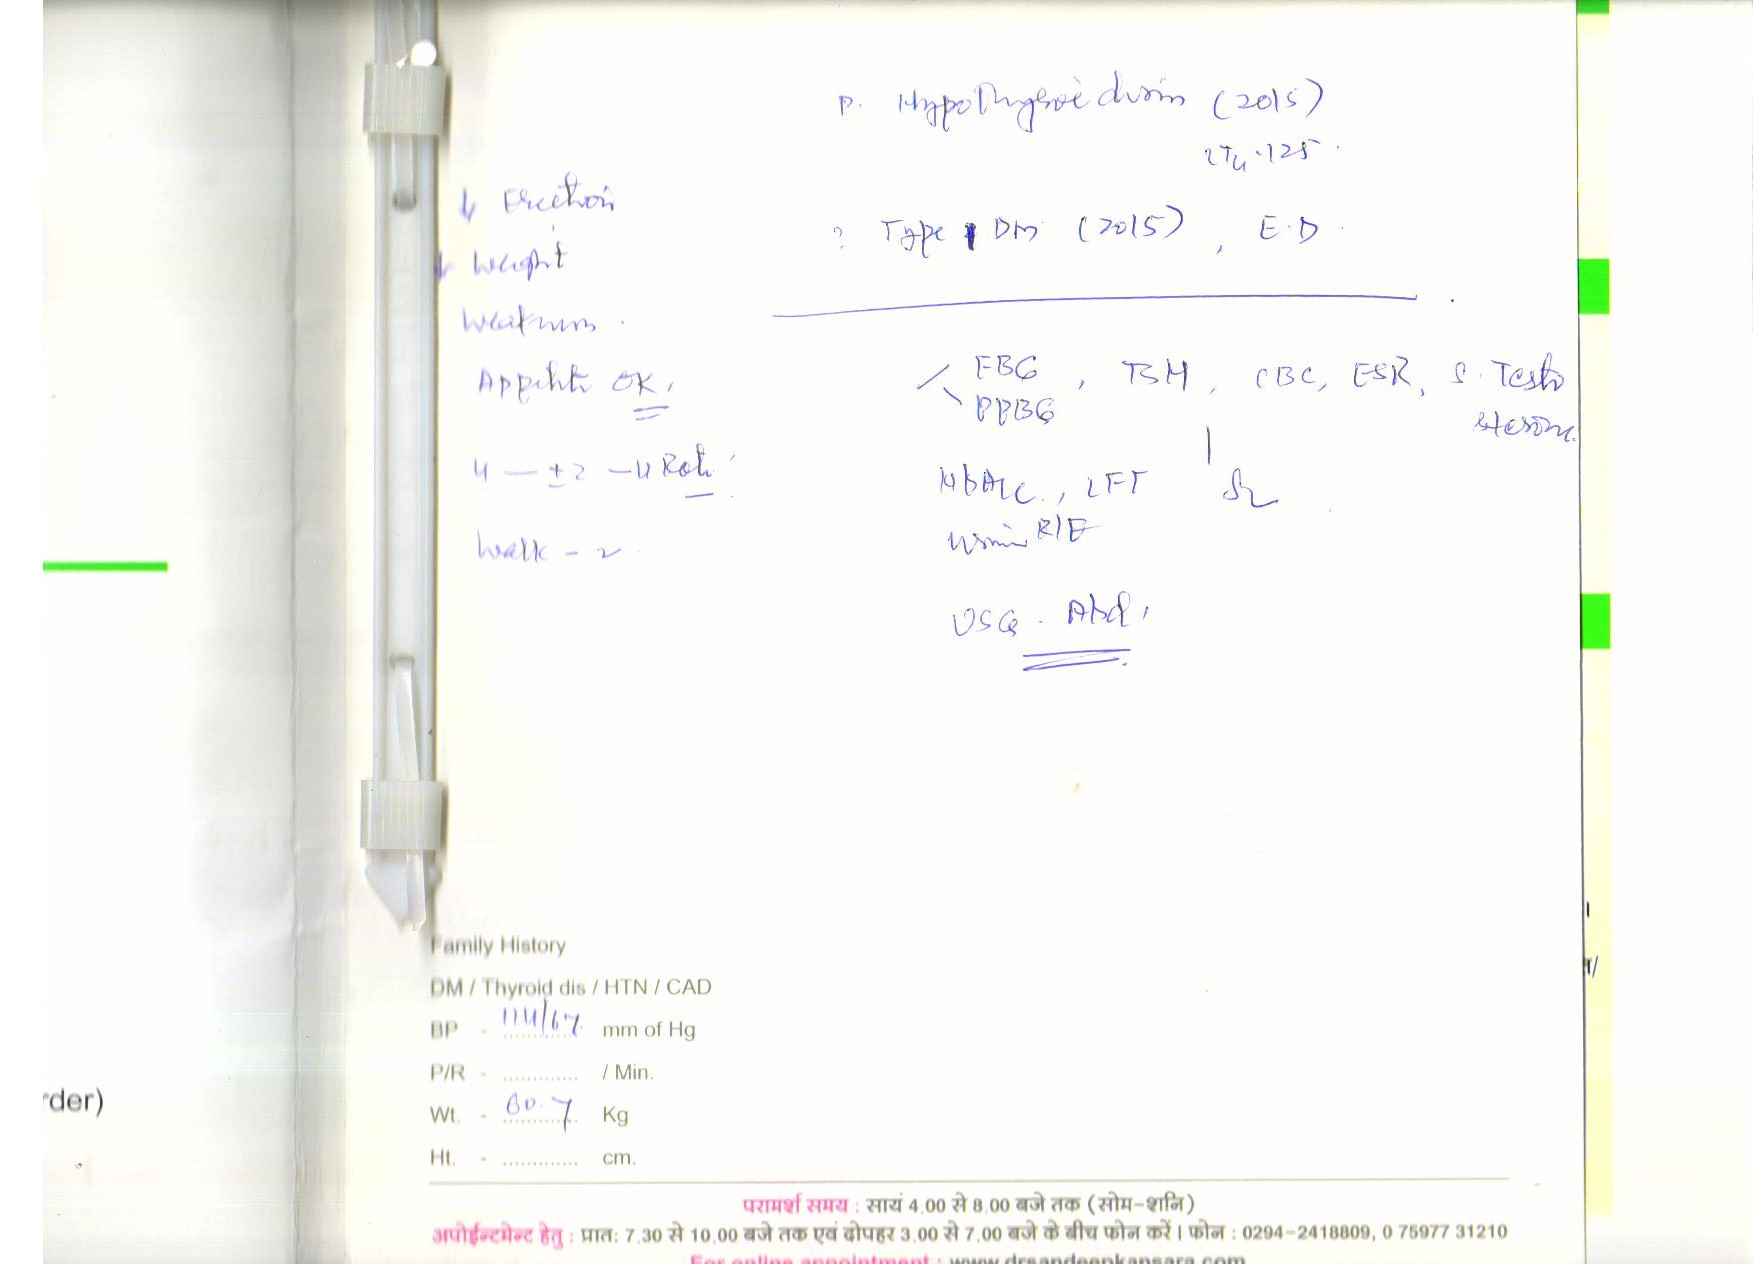 P. Hypothyroidism (2015)
LT4 125
? Type 1 DM (2015), E.D
↓ Erection
↓ Weight
Weakness.
Appetite OK,
4 — ±2 — 4 Roti
Walk -
FBG, TSH, CBC, ESR, S. Testo
PPBG sterone
HbA1c, LFT
Urine R/E
USG. Abd,
Family History
DM / Thyroid dis / HTN / CAD
BP - 114/67 mm of Hg
P/R - ............ / Min.
Wt. - 60.7 Kg
Ht. - ............ cm.
rder)
परामर्श समय : सायं 4.00 से 8.00 बजे तक (सोम-शनि)
अपोईन्टमेन्ट हेतु : प्रात: 7.30 से 10.00 बजे तक एवं दोपहर 3.00 से 7.00 बजे के बीच फोन करें। फोन : 0294-2418809, 0 75977 31210
For online appointment : www.drsandeepkansara.com